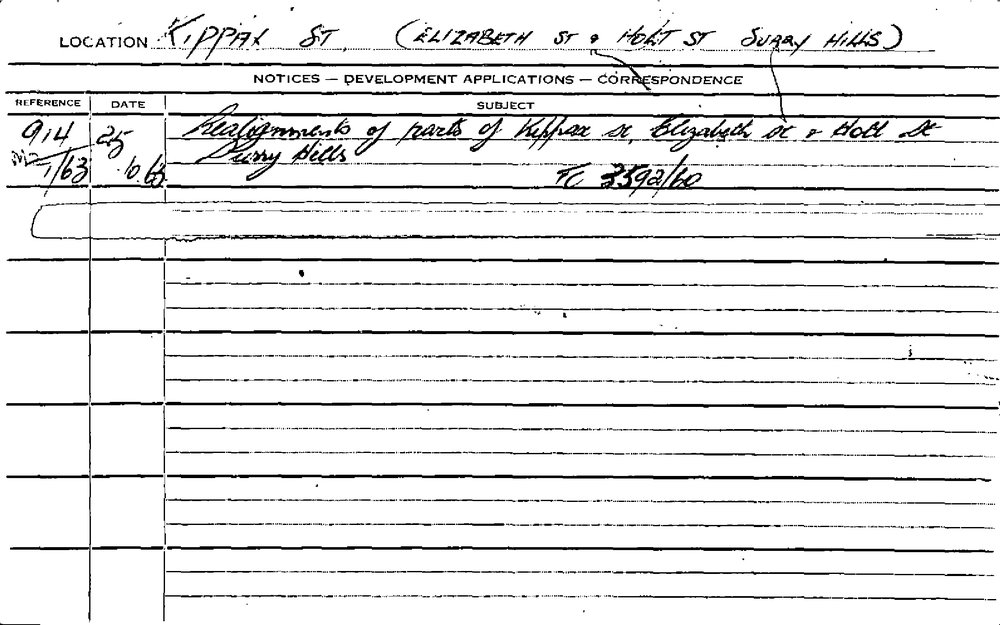 LOCATION KIPPAX ST. (ELIZABETH ST & HOLT ST SURRY HILLS)
NOTICES — DEVELOPMENT APPLICATIONS — CORRESPONDENCE
REFERENCE DATE SUBJECT
914 25 Realignments of parts of Kippax St, Elizabeth St & Holt St
Surry Hills
1/63 10.63 TO 3592/60